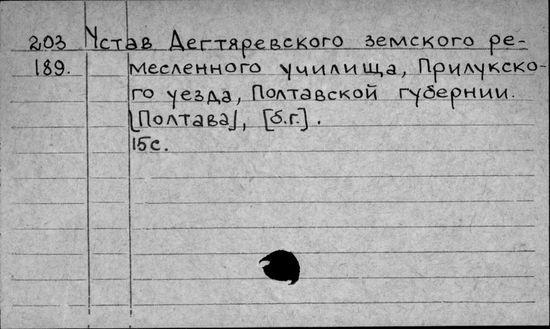 203 Устав Дегтяревского земского ре-
189. месленного училища, Прилукско-
го уезда, Полтавской губернии.
[Полтава], [б.г.].
15с.